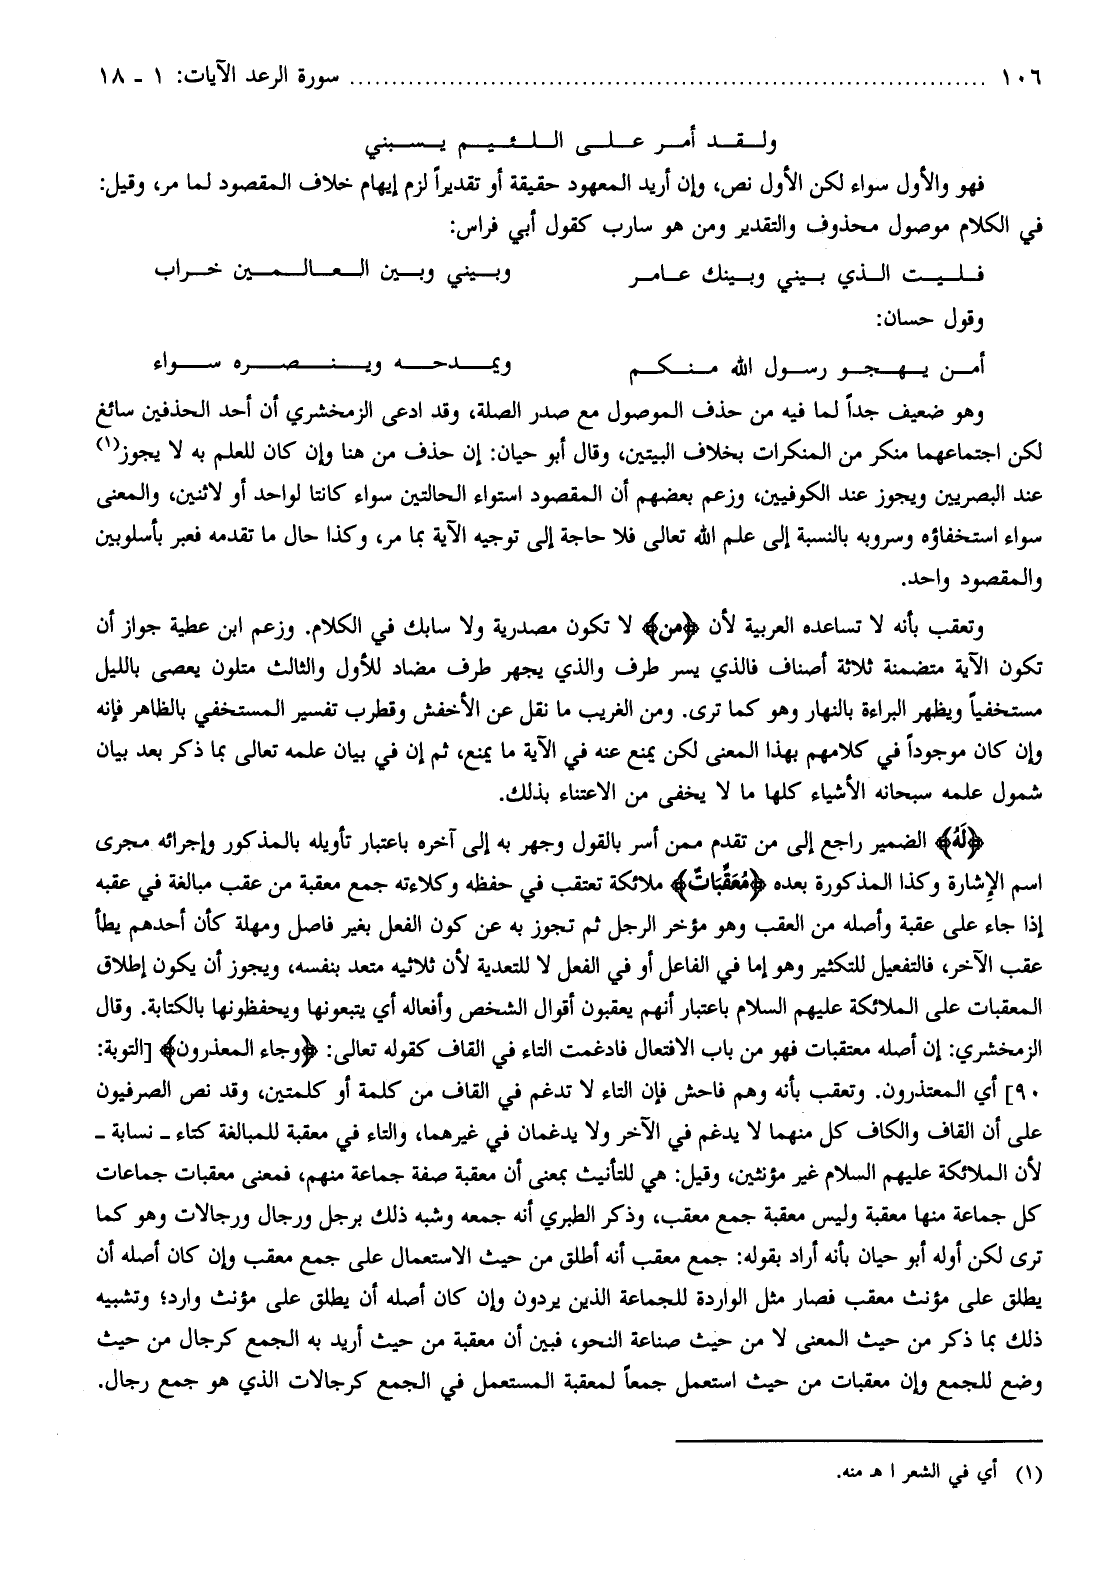 ١٠٦ ........................................................................ سورة الرعد الآيات: ١ - ١٨
ولقد أمر على اللئيم يسبني
فهو والأول سواء لكن الأول نص، وإن أريد المعهود حقيقة أو تقديراً لزم إيهام خلاف المقصود لما مر، وقيل:
في الكلام موصول محذوف والتقدير ومن هو سارب كقول أبي فراس:
فليت الذي بيني وبينك عامر وبيني وبين العالمين خراب
وقول حسان:
أمن يهجو رسول الله منكم ويمدحه وينصره سواء
وهو ضعيف جداً لما فيه من حذف الموصول مع صدر الصلة، وقد ادعى الزمخشري أن أحد الحذفين سائغ
لكن اجتماعهما منكر من المنكرات بخلاف البيتين، وقال أبو حيان: إن حذف من هنا وإن كان للعلم به لا يجوز(١)
عند البصريين ويجوز عند الكوفيين، وزعم بعضهم أن المقصود استواء الحالتين سواء كانتا لواحد أو لاثنين، والمعنى
سواء استخفاؤه وسروبه بالنسبة إلى علم الله تعالى فلا حاجة إلى توجيه الآية بما مر، وكذا حال ما تقدمه فعبر بأسلوبين
والمقصود واحد.
وتعقب بأنه لا تساعده العربية لأن ﴿من﴾ لا تكون مصدرية ولا سابك في الكلام. وزعم ابن عطية جواز أن
تكون الآية متضمنة ثلاثة أصناف فالذي يسر طرف والذي يجهر طرف مضاد للأول والثالث متلون يعصى بالليل
مستخفياً ويظهر البراءة بالنهار وهو كما ترى. ومن الغريب ما نقل عن الأخفش وقطرب تفسير المستخفي بالظاهر فإنه
وإن كان موجوداً في كلامهم بهذا المعنى لكن يمنع عنه في الآية ما يمنع، ثم إن في بيان علمه تعالى بما ذكر بعد بيان
شمول علمه سبحانه الأشياء كلها ما لا يخفى من الاعتناء بذلك.
﴿لَهُ﴾ الضمير راجع إلى من تقدم ممن أسر بالقول وجهر به إلى آخره باعتبار تأويله بالمذكور وإجرائه مجرى
اسم الإِشارة وكذا المذكورة بعده ﴿مُعَقِّبَاتٌ﴾ ملائكة تعتقب في حفظه وكلاءته جمع معقبة من عقب مبالغة في عقبه
إذا جاء على عقبة وأصله من العقب وهو مؤخر الرجل ثم تجوز به عن كون الفعل بغير فاصل ومهلة كأن أحدهم يطأ
عقب الآخر، فالتفعيل للتكثير وهو إما في الفاعل أو في الفعل لا للتعدية لأن ثلاثيه متعد بنفسه، ويجوز أن يكون إطلاق
المعقبات على الملائكة عليهم السلام باعتبار أنهم يعقبون أقوال الشخص وأفعاله أي يتبعونها ويحفظونها بالكتابة. وقال
الزمخشري: إن أصله معتقبات فهو من باب الافتعال فادغمت التاء في القاف كقوله تعالى: ﴿وجاء المعذرون﴾ [التوبة:
٩٠] أي المعتذرون. وتعقب بأنه وهم فاحش فإن التاء لا تدغم في القاف من كلمة أو كلمتين، وقد نص الصرفيون
على أن القاف والكاف كل منهما لا يدغم في الآخر ولا يدغمان في غيرهما، والتاء في معقبة للمبالغة كتاء ـ نسابة ـ
لأن الملائكة عليهم السلام غير مؤنثين، وقيل: هي للتأنيث بمعنى أن معقبة صفة جماعة منهم، فمعنى معقبات جماعات
كل جماعة منها معقبة وليس معقبة جمع معقب، وذكر الطبري أنه جمعه وشبه ذلك برجل ورجال ورجالات وهو كما
ترى لكن أوله أبو حيان بأنه أراد بقوله: جمع معقب أنه أطلق من حيث الاستعمال على جمع معقب وإن كان أصله أن
يطلق على مؤنث معقب فصار مثل الواردة للجماعة الذين يردون وإن كان أصله أن يطلق على مؤنث وارد؛ وتشبيه
ذلك بما ذكر من حيث المعنى لا من حيث صناعة النحو، فبين أن معقبة من حيث أريد به الجمع كرجال من حيث
وضع للجمع وإن معقبات من حيث استعمل جمعاً لمعقبة المستعمل في الجمع كرجالات الذي هو جمع رجال.
(١) أي في الشعر ا هـ منه.